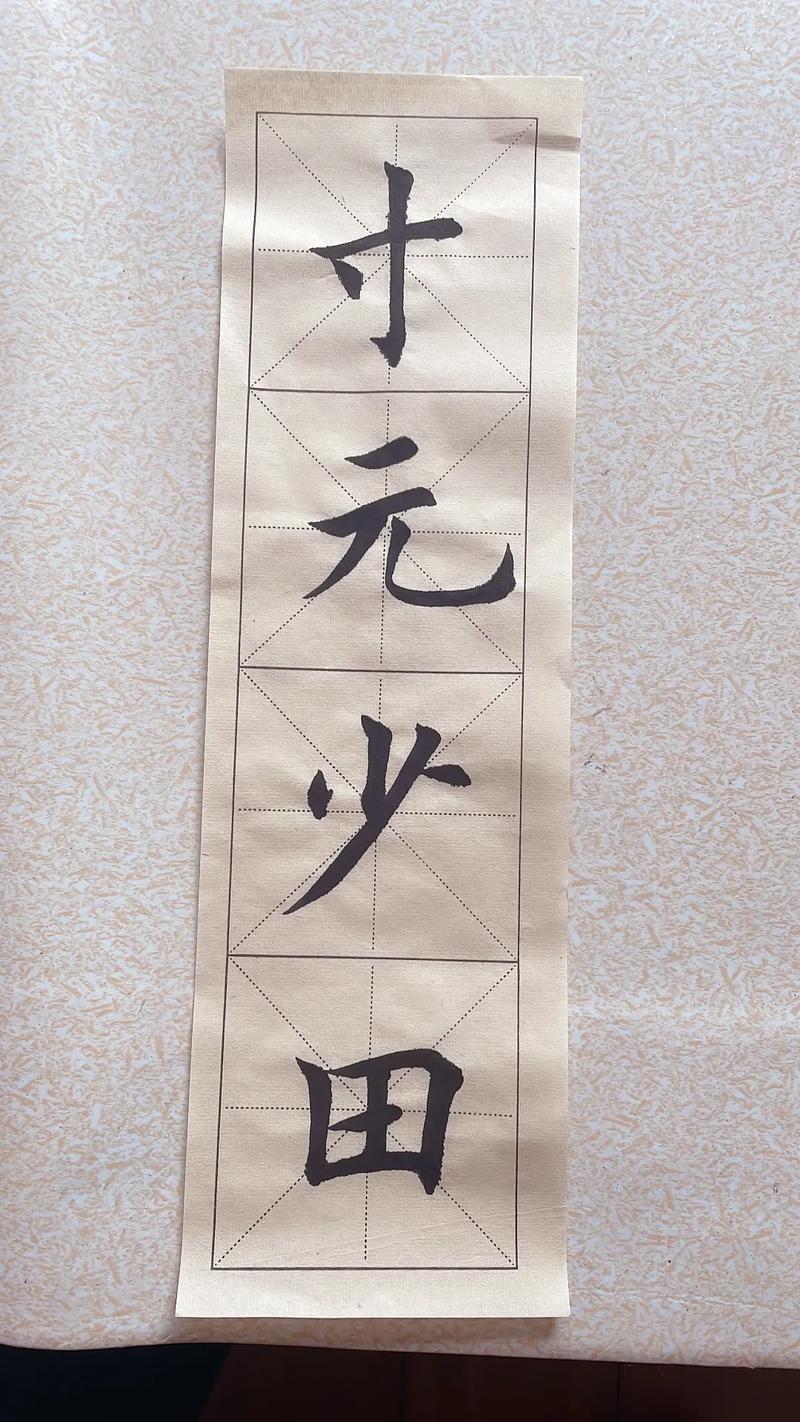 寸
元
少
田